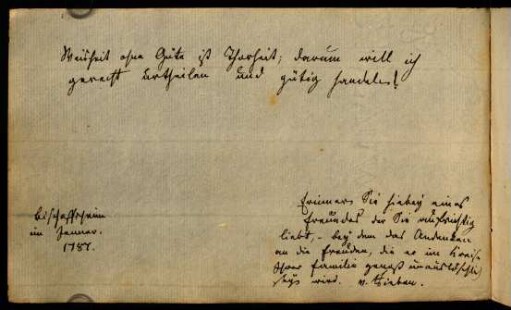 Weisheit ohne Güte ist Thorheit; darum will ich
gerecht urtheilen und gütig handeln!
Bischoffsheim
im Jenner.
1787.
Erinnern Sie hiebey eines
Freundes der Sie aufrichtig
liebt, – bey dem das Andenken
an die Freuden, die er im Kreise
Ihrer Familie genoß unauslöschli
seyn wird. v.